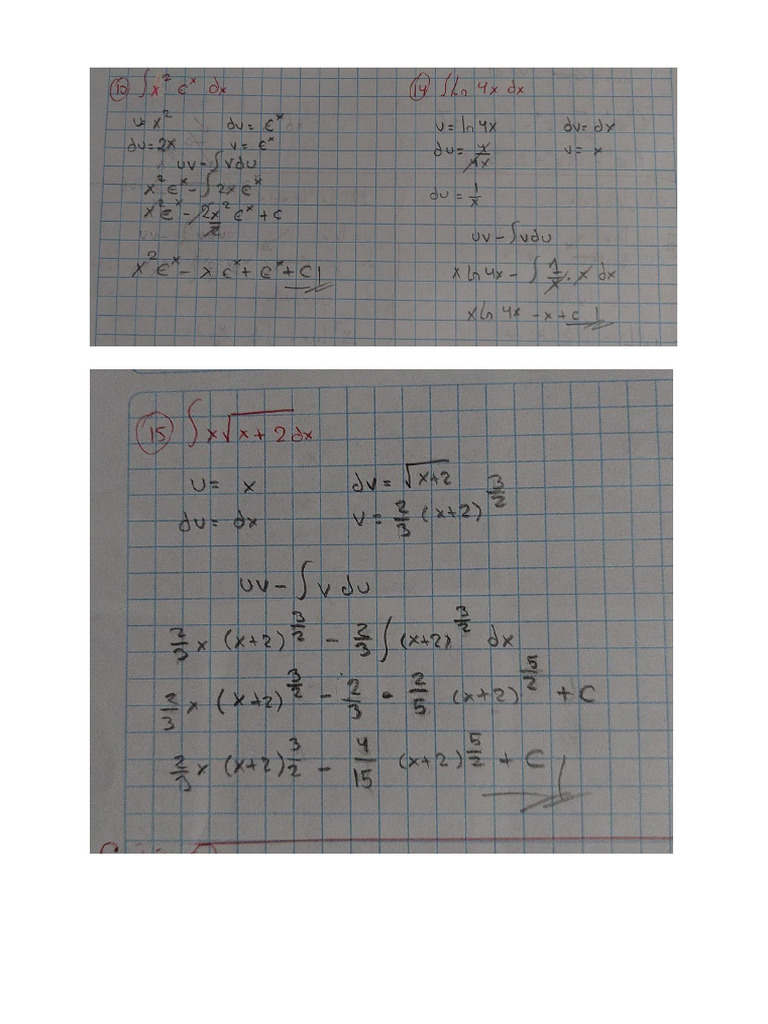 ⑩ ∫ x² e^x dx
u = x² dv = e^x
du = 2x v = e^x
uv - ∫ v du
x² e^x - ∫ 2x e^x
x² e^x - 2x²/2 e^x + c
x² e^x - x e^x + e^x + C
⑭ ∫ Ln 4x dx
v = ln 4x dv = dx
du = 4/4x v = x
du = 1/x
uv - ∫ v du
x Ln 4x - ∫ 1/x · x dx
x Ln 4x - x + c
⑮ ∫ x √(x+2) dx
u = x dv = √(x+2)
du = dx v = 2/3 (x+2)^3/2
uv - ∫ v du
2/3 x (x+2)^3/2 - 2/3 ∫ (x+2)^3/2 dx
2/3 x (x+2)^3/2 - 2/3 - 2/5 (x+2)^5/2 + C
2/3 x (x+2)^3/2 - 4/15 (x+2)^5/2 + C